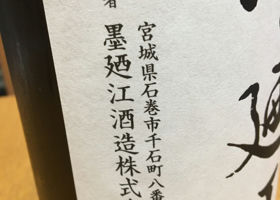 宮城県石巻市千石町八番
墨廼江酒造株式
者
廼